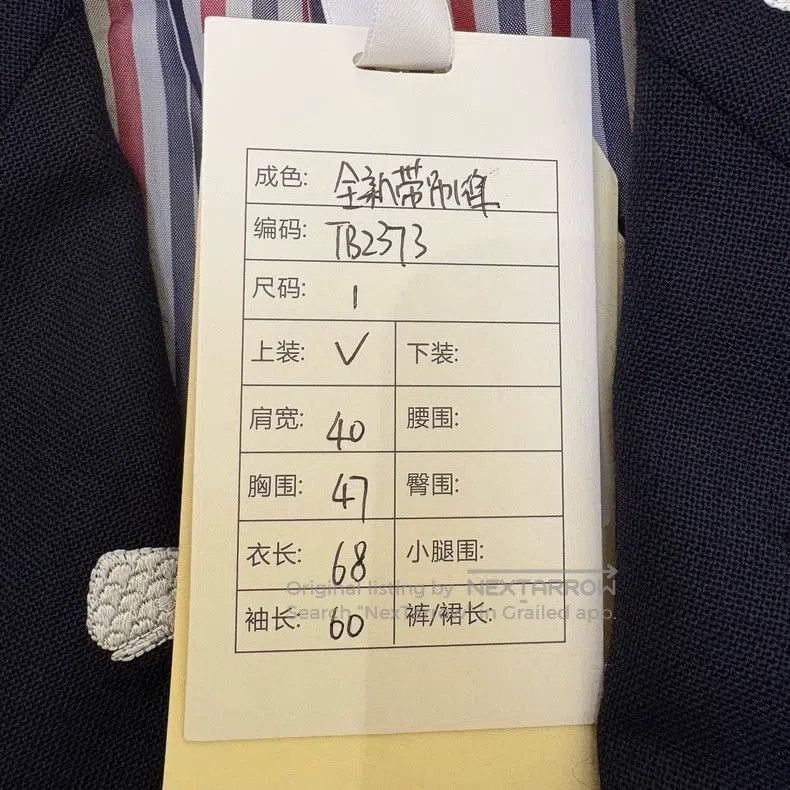 成色: 全新带吊牌
编码: TB2373
尺码: 1
上装: ✓ 下装:
肩宽: 40 腰围:
胸围: 47 臀围:
衣长: 68 小腿围:
Original listing by NEXTARROW
Search "NextArrow" in Grailed app.
袖长: 60 裤/裙长: